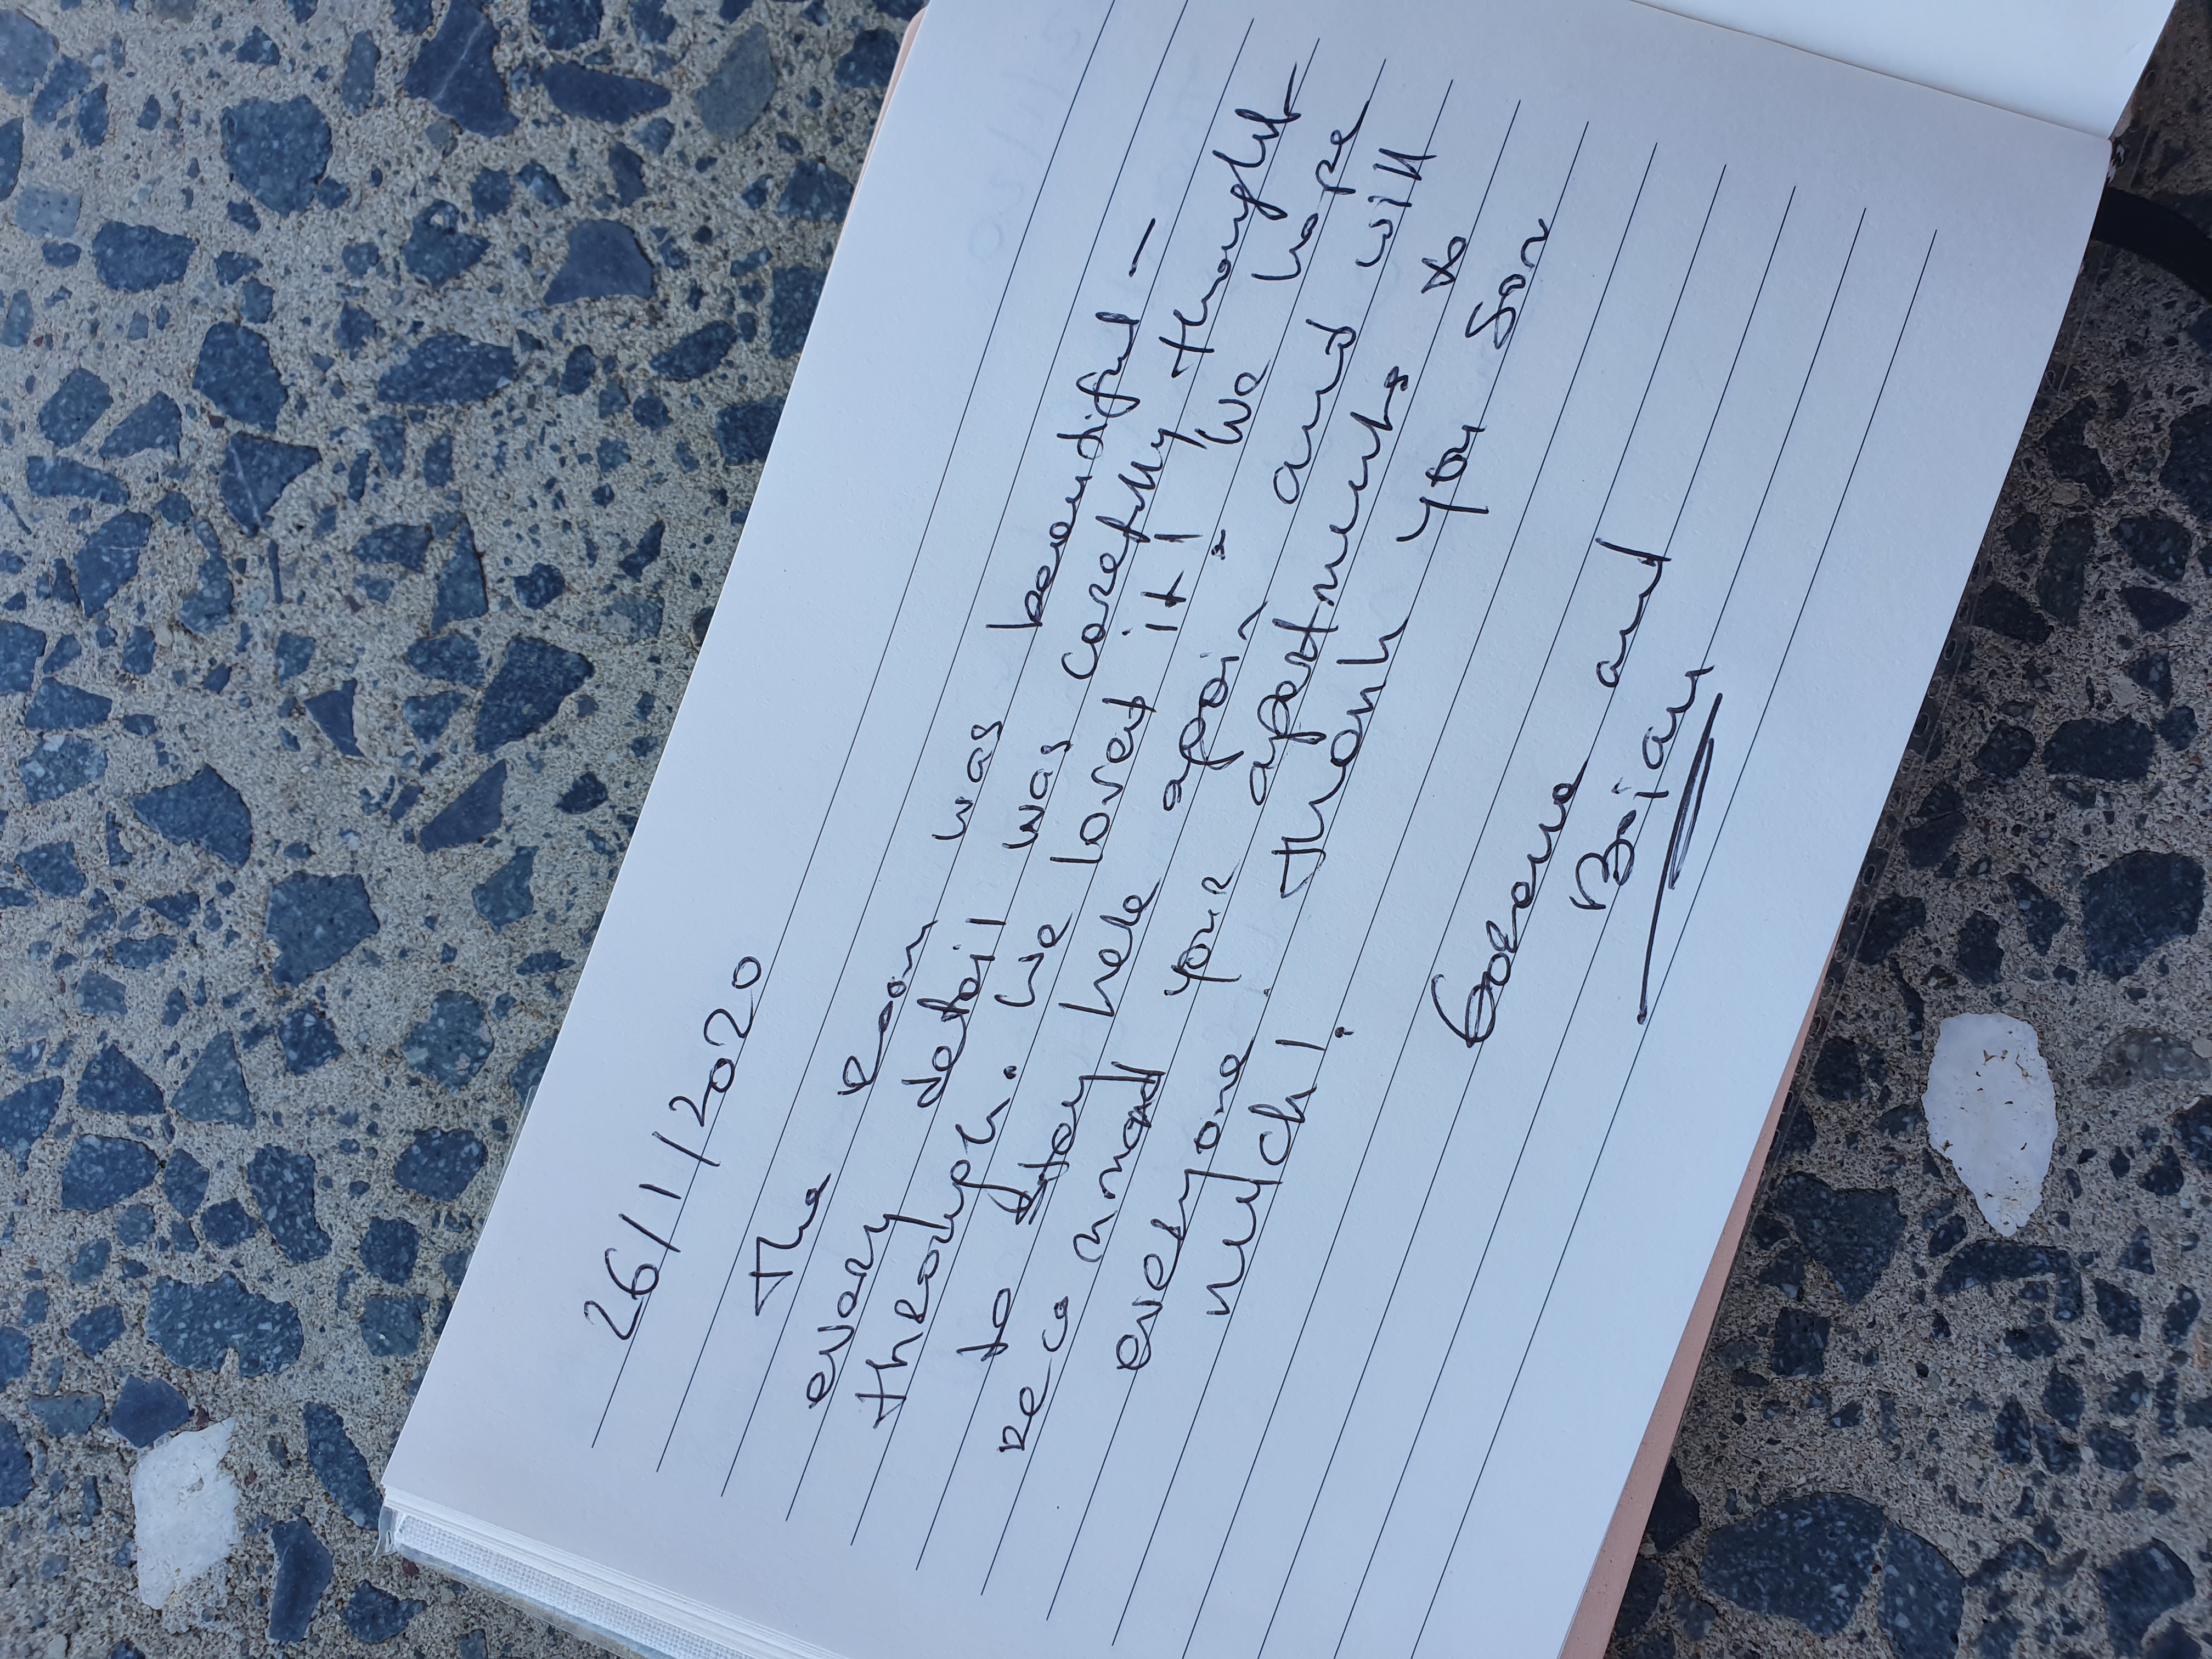 26/1/2020
The room was beautiful -
every detail was carefully thought
through. We loved it! We hope
to stay here again. and will
recommend your apartments to
everyone. Thank you son
much!
and
Brian